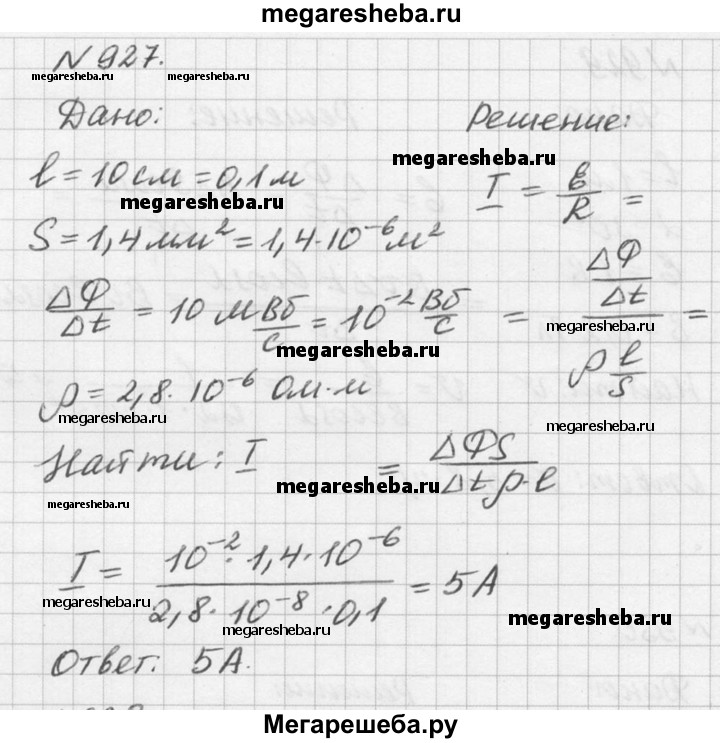 megaresheba.ru
№927.
megaresheba.ru megaresheba.ru
Дано: Решение:
megaresheba.ru
l = 10 см = 0,1 м
megaresheba.ru
I = ℰ/R =
S = 1,4 мм² = 1,4·10⁻⁶ м²
ΔФ/Δt = 10 мВб/с = 10⁻² Вб/с
= (ΔФ/Δt)/(ρ l/S) =
megaresheba.ru
megaresheba.ru
ρ = 2,8·10⁻⁶ Ом·м
megaresheba.ru
megaresheba.ru
Найти: I
= ΔФS/Δtρ·l
megaresheba.ru
megaresheba.ru
I = 10⁻²·1,4·10⁻⁶/2,8·10⁻⁸·0,1 = 5А
megaresheba.ru
megaresheba.ru
megaresheba.ru
Ответ: 5А.
Мегарешеба.ру